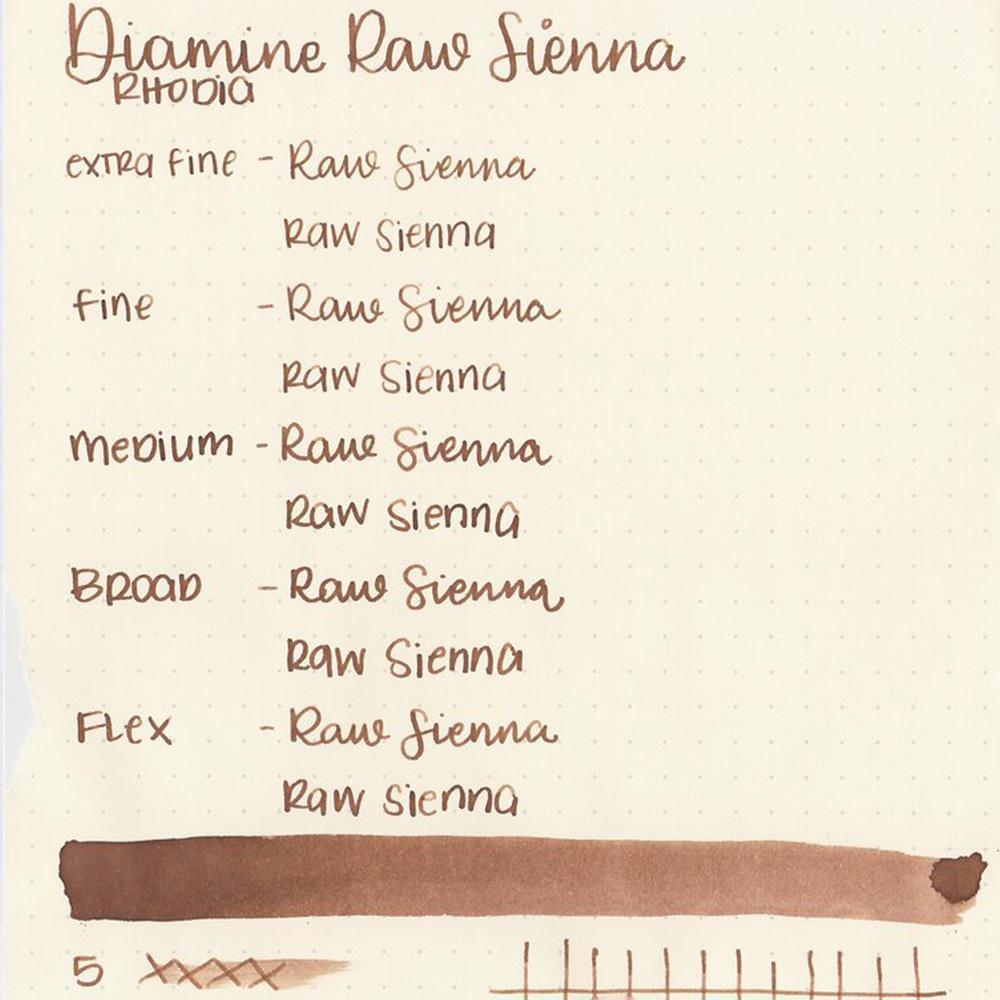 Diamine Raw Sienna
RHODIA
extra fine - Raw Sienna
Raw Sienna
fine - Raw Sienna
Raw Sienna
medium - Raw Sienna
Raw Sienna
Broad - Raw Sienna
Raw Sienna
Flex - Raw Sienna
Raw Sienna
5 XXXX